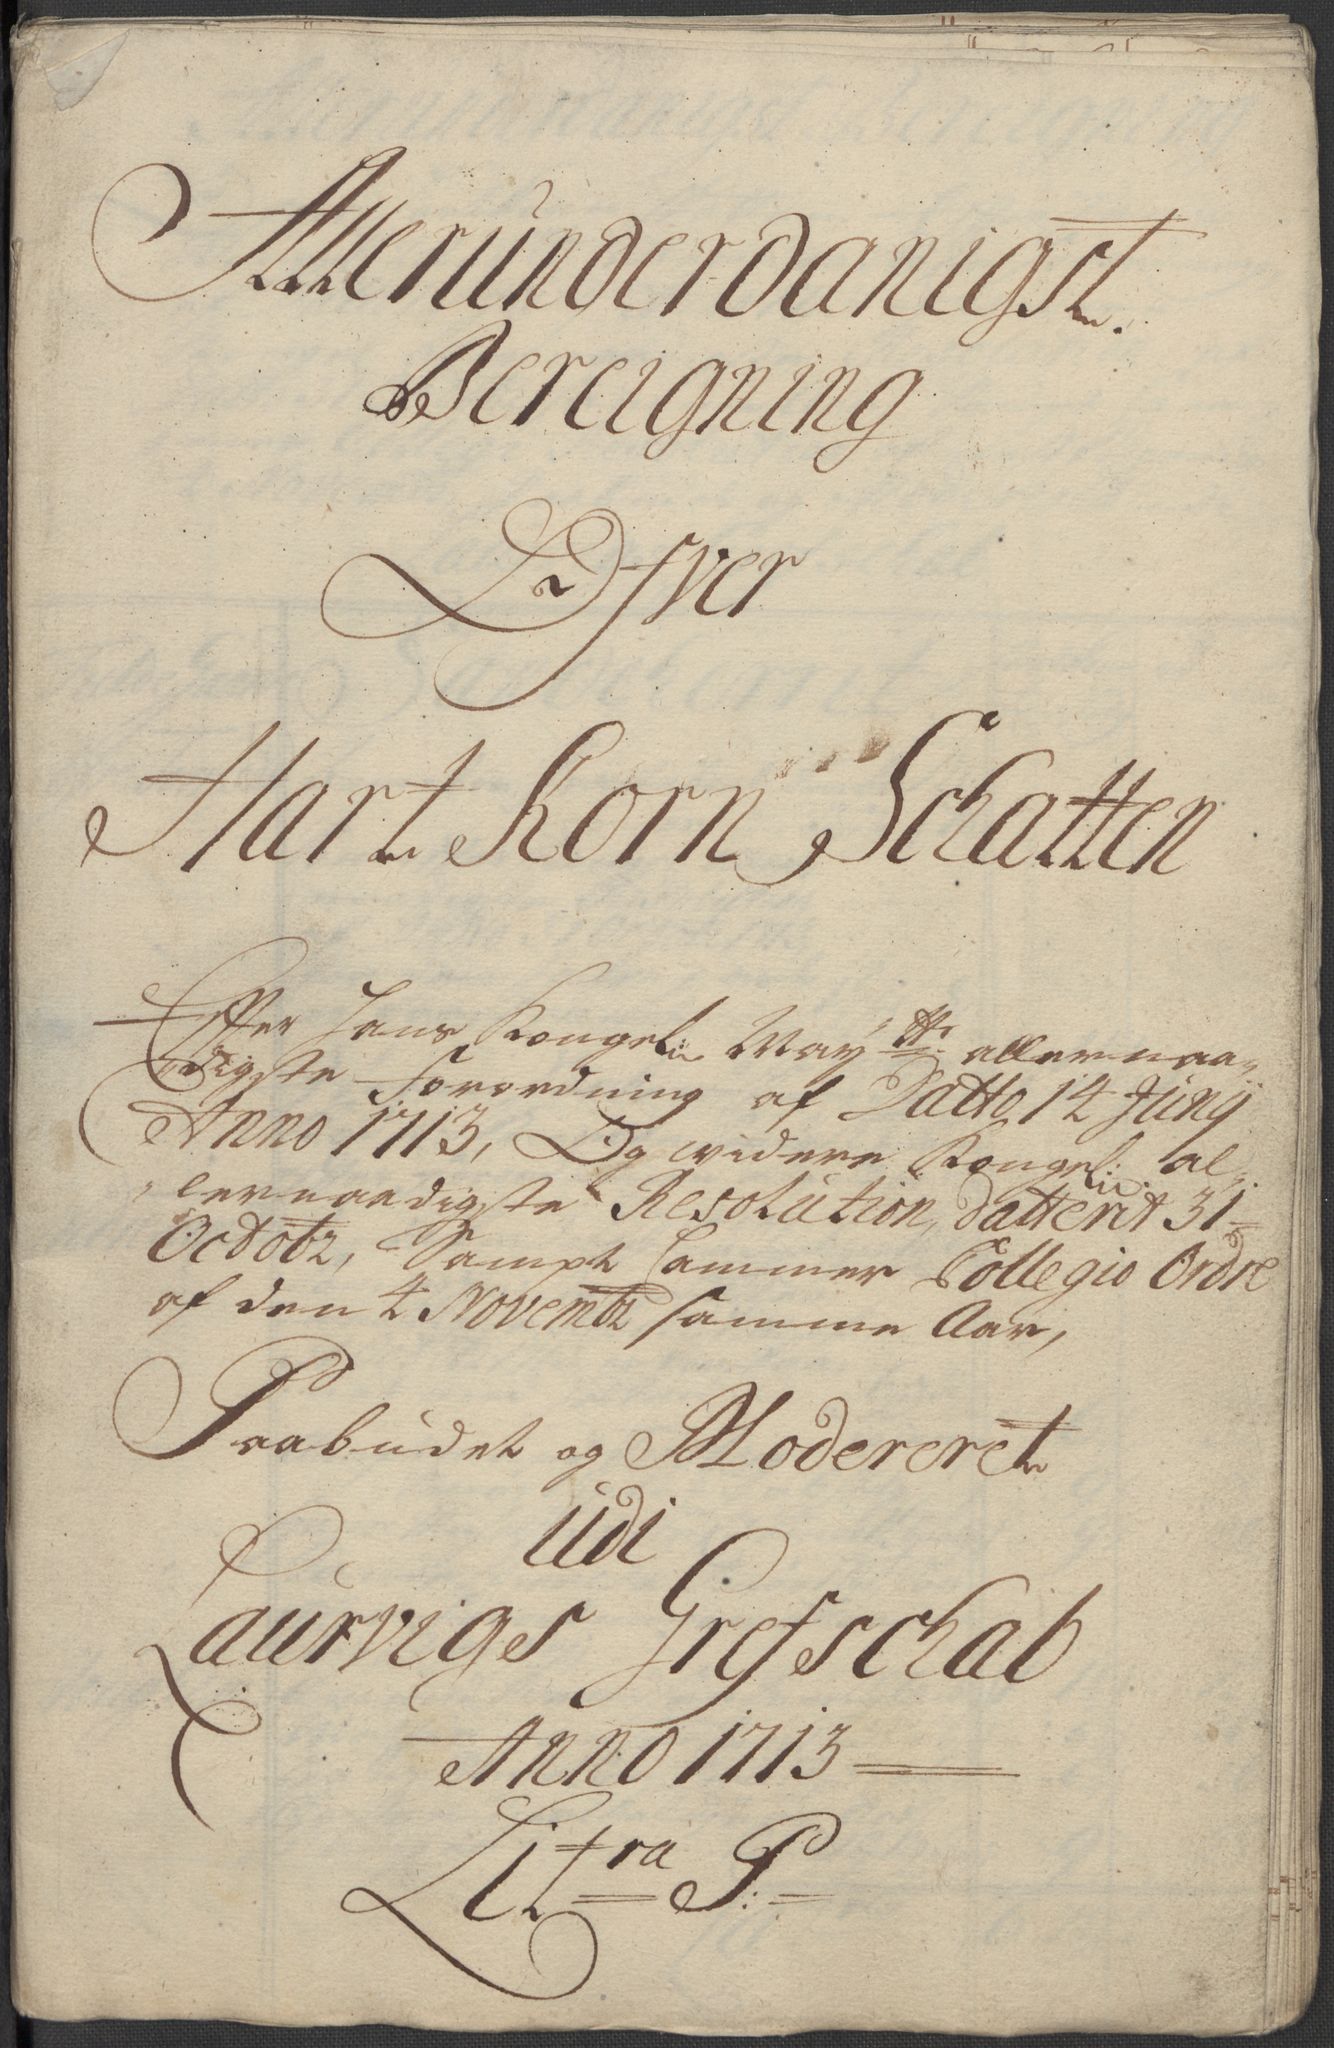 Alleründerdanigst.
Bereigning
Ofver
Hart Korn Schatten
Effter Hans Kongel: May.tts allernaa-
digste Forordning af Datto 14 Junÿ
Anno 1713, Og widere Kongel: al-
lernaadigste Resolution, datterit 31
Octobr, Sampt Cammer Collegio Ordre
af den 4 Novembr samme Aar,
Paabudet og Modereret
udi
Laürvigs Grefschab
Anno 1713
Litra P: